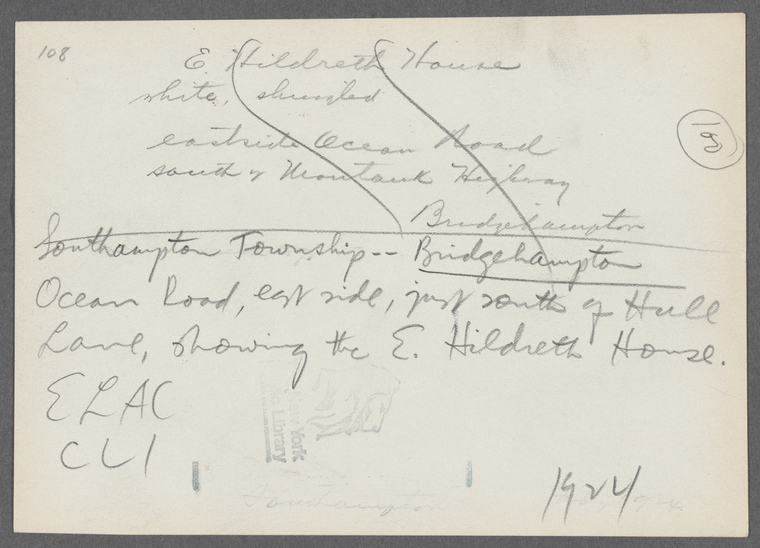 108
E. Hildreth House
white, shingled
eastside Ocean Road
south of Montauk Highway
Bridgehampton
Southampton Township -- Bridgehampton
Ocean Road, east side, just south of Hull
Lane, showing the E. Hildreth House.
ELAC
CLI
New York
Public Library
Southampton
1924